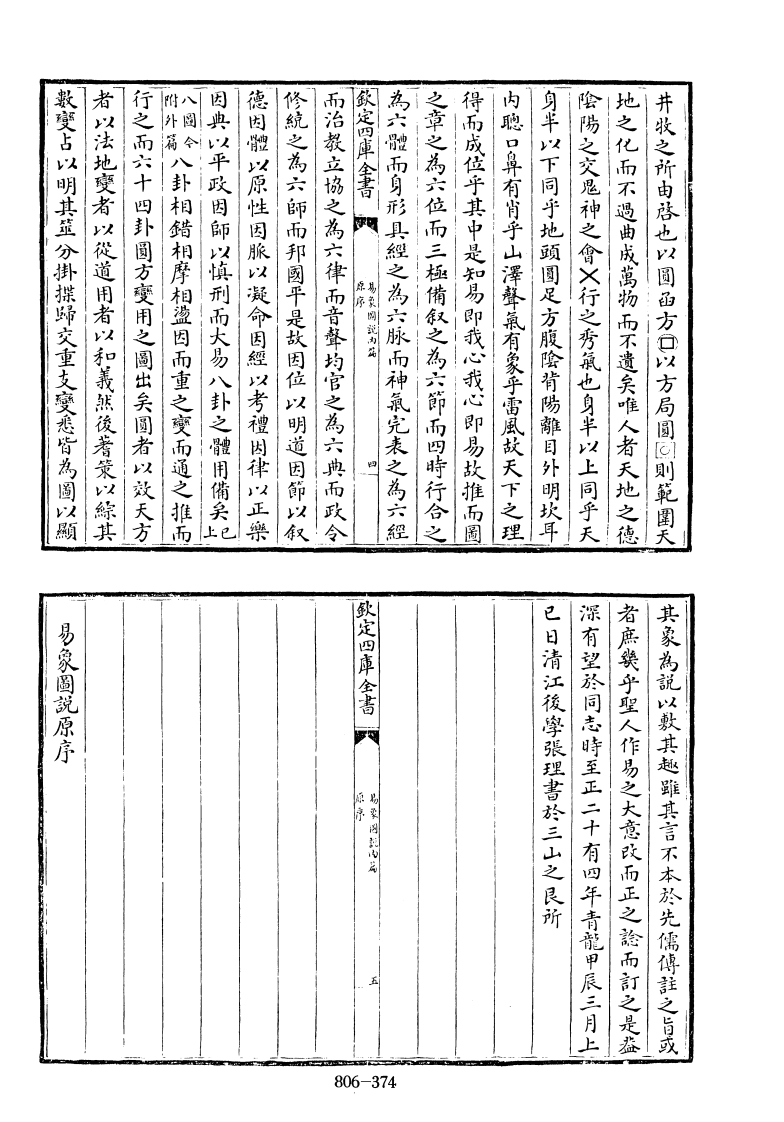 井牧之所由啓也以圓函方以方局圓則範圍天
地之化而不過曲成萬物而不遺矣唯人者天地之德
陰陽之交鬼神之會㐅行之秀氣也身半以上同乎天
身半以下同乎地頭圓足方腹陰背陽離目外明坎耳
内聰口鼻有肖乎山澤聲氣有象乎雷風故天下之理
得而成位乎其中是知易即我心我心即易故推而圖
之章之為六位而三極備叙之為六節而四時行合之
為六體而身形具經之為六脉而神氣完表之為六經
欽定四庫全書
易象圖說内篇
原序
四
而治教立協之為六律而音聲均官之為六典而政令
修統之為六師而邦國平是故因位以明道因節以叙
德因體以原性因脈以凝命因經以考禮因律以正樂
因典以平政因師以慎刑而大易八卦之體用備矣已上
八圖令附外篇八卦相錯相摩相盪因而重之變而通之推而
行之而六十四卦圓方變用之圖出矣圓者以效天方
者以法地變者以從道用者以和義然後蓍策以綜其
數變占以明其筮分掛揲歸交重支變悉皆為圖以顯
其象為說以敷其趣雖其言不本於先儒傅註之旨或
者庶幾乎聖人作易之大意改而正之諗而訂之是葢
深有望於同志時至正二十有四年青龍甲辰三月上
已日清江後學張理書於三山之艮所
欽定四庫全書
易象圖說内篇
原序
五
易象圖說原序
806-374